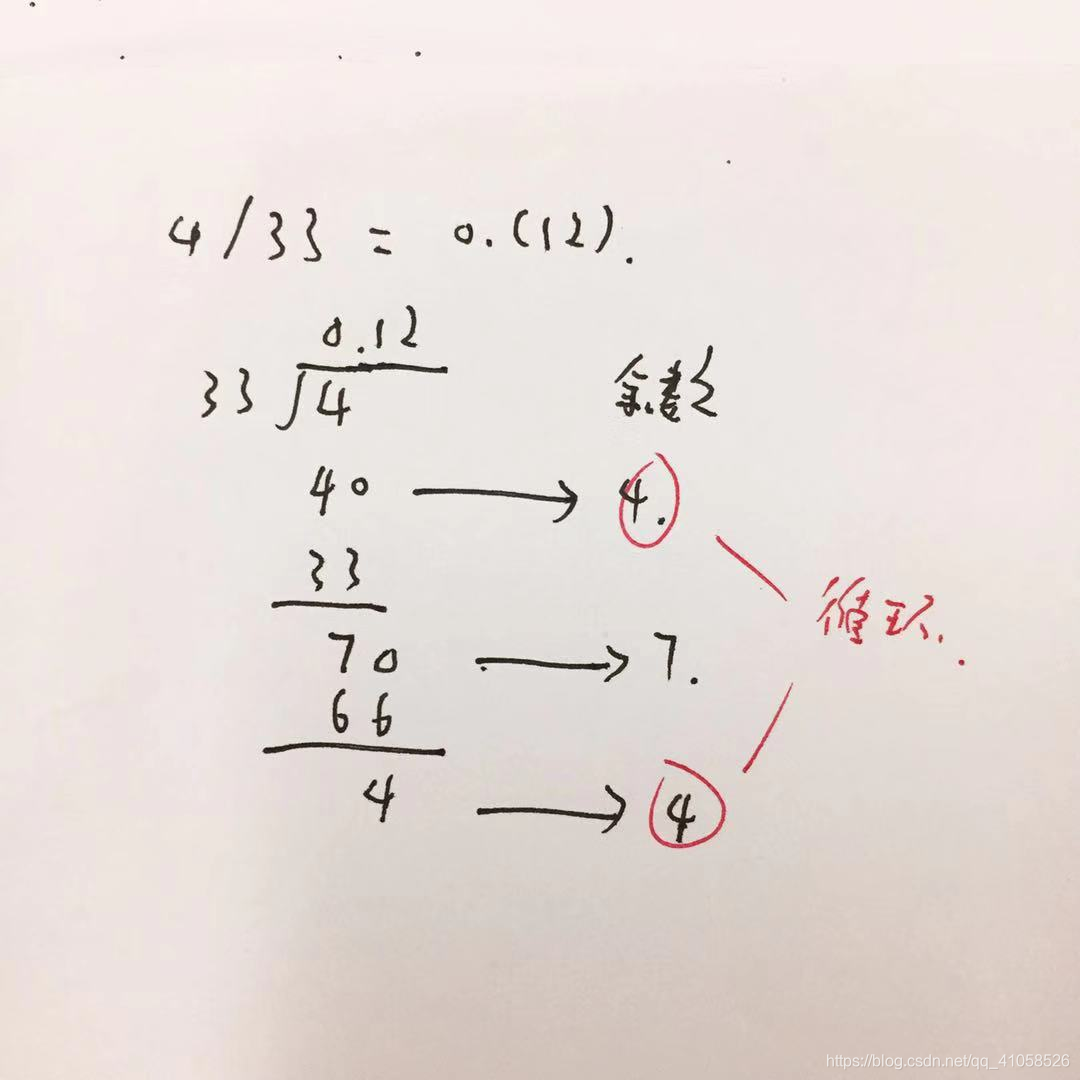 4/33 = 0.(12).
0.12
33 4 余数
40 → 4.
33
循环.
70 → 7.
66
4 → 4
https://blog.csdn.net/qq_41058526